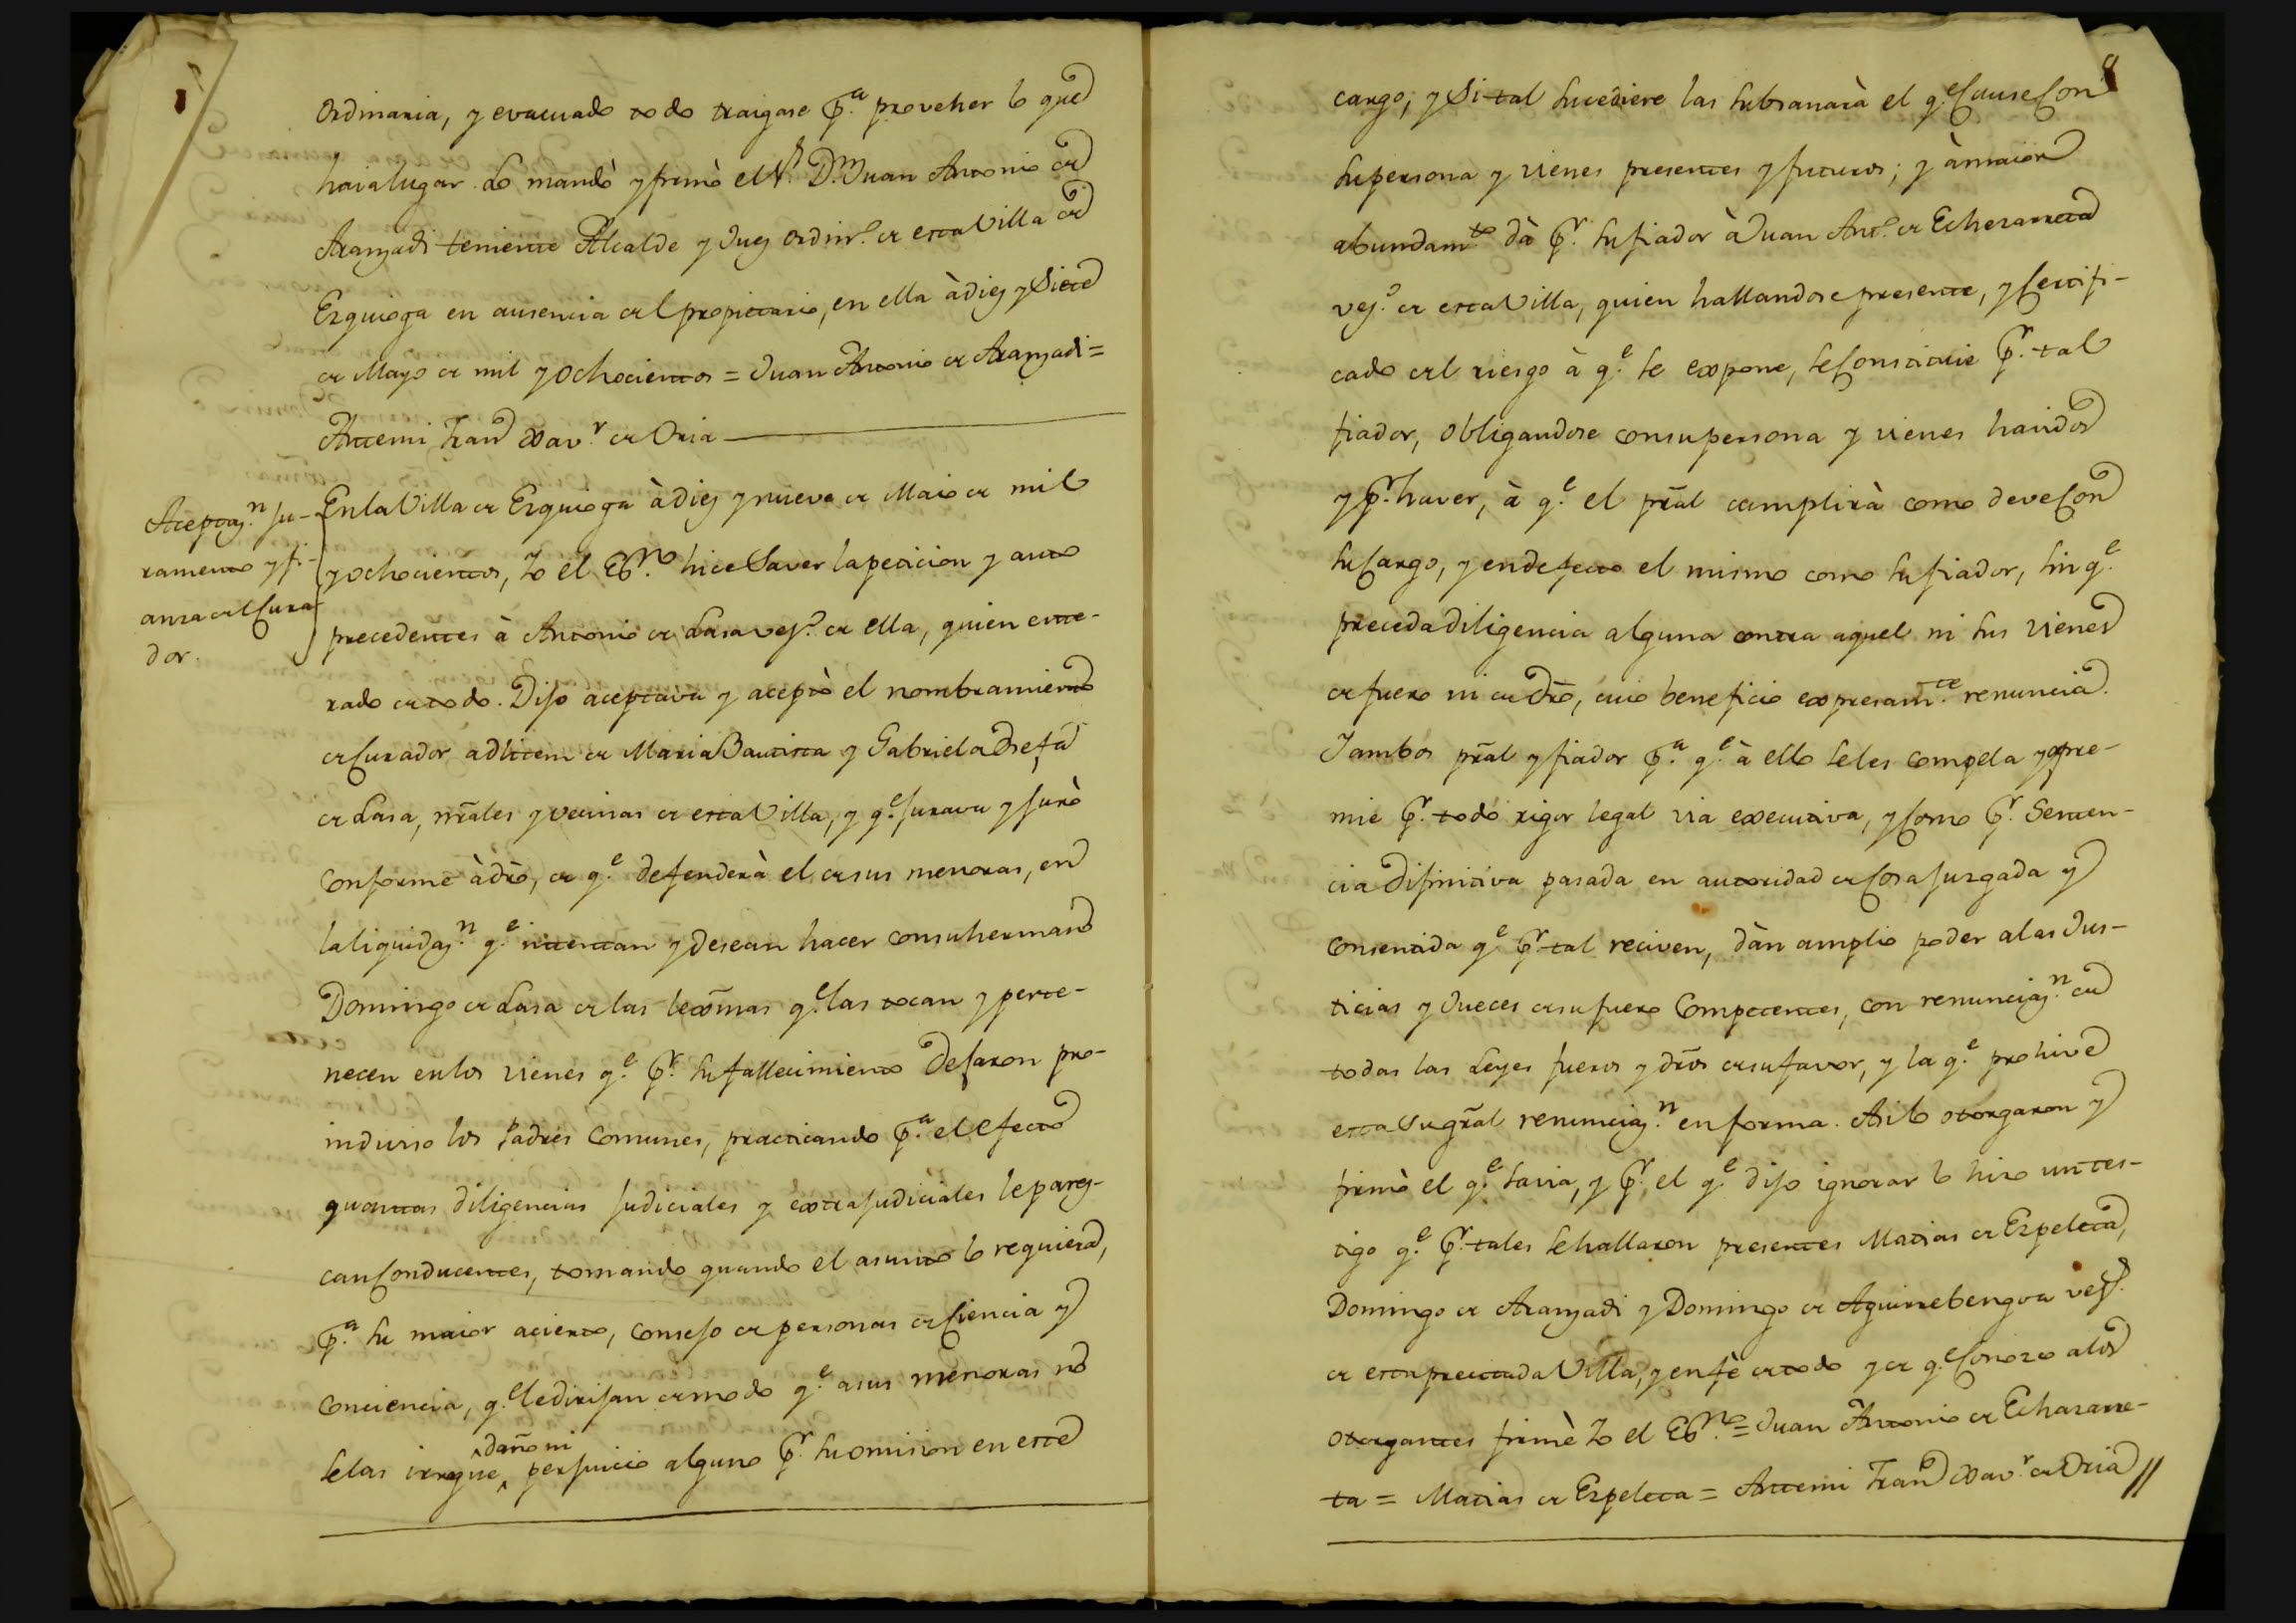 Ordinaria, y evacuado todo traigase p.ª proveher lo que
haia lugar. Lo mandò y firmò el S.r D.n Juan Antonio de
Aranzadi teniente Alcalde y Juez ordin.º de esta Villa de
Ezquioga en ausencia del propietario, en ella à diez y Siete
de Mayo de mil y ochocientos = Juan Antonio de Aranzadi =
Antemi Fran.co Xav.r de Oria
Aceptaz.n ju-
ramento y fi-
anza del Cura-
dor.
En la Villa de Ezquioga à diez y nueve de Maio de mil
y ochocientos, Yo el Ess.no hice Saver la peticion y auto
precedentes à Antonio de Lasa vez.º de ella, quien ente-
rado de todo. Dijo aceptava y aceptò el nombramiento
de Curador adlitem de Maria Bautista y Gabriela Josefa
de Lasa, nrãles y vecinas de esta Villa, y q.e jurava y jurò
Conforme à dr̃o, de q.e defenderà el de sus menoras, en
la liquidaz.n q.e intentan y desean hacer con su hermano
Domingo de Lasa de las lexm̃as q.e las tocan y perte-
necen en los vienes q.e p.r su fallecimiento dejaron pro-
indiviso los Padres Comunes, practicando p.ª el efecto
quantas diligencias judiciales y extrajudiciales le parez-
can Conducentes, tomando quando el asunto lo requiera,
p.ª su maior acierto, Consejo de personas de Ciencia y
Conciencia, q.e le dirijan de modo q.e a sus menoras no
se las irrogue daño ni perjuicio alguno p.r su omision en este
cargo; y Si tal sucediere las subsanarà el q.e Cause Con
su persona y vienes presentes y futuros; y à maior
abundam.to dà p.r su fiador à Juan Ant.º de Echezarreta
vez.º de esta Villa, quien hallandose presente, y Certifi-
cado del riesgo à q.e se expone, se Constituie p.r tal
fiador, obligandose con su persona y vienes havidos
y p.r haver, à q.e el pr̃al cumplirà como deve Con
su Cargo, y en defecto el mismo como su fiador, sin q.e
preceda diligencia alguna contra aquel ni sus vienes
de fuero ni de dr̃o, cuio beneficio expresam.te renuncia.
Y ambos pr̃al y fiador p.ª q.e à ello se les compela y apre-
mie p.r todo rigor legal via executiva, y Como p.r Senten-
cia difinitiva pasada en autoridad de Cosa juzgada y
Consentida q.e p.r tal reciven, dàn amplio poder a las Jus-
ticias y Jueces de su fuero Competentes, con renunciaz.n de
todas las Leyes fueros y dr̃os de su favor, y la q.e prohive
esta Su gr̃al renunciaz.n en forma. Asi lo otorgaron y
firmò el q.e savia, y p.r el q.e dijo ignorar lo hizo un tes-
tigo q.e p.r tales se hallaron presentes Matias de Ezpeleta,
Domingo de Aranzadi y Domingo de Aguirrebengoa vez.s
de esta precitada Villa, y en fè de todo y de q.e Conozco a los
otorgantes firmè Yo el Ess.no = Juan Antonio de Echazarre-
ta = Matias de Ezpeleta = Antemi Fran.co Xav.r de Oria //